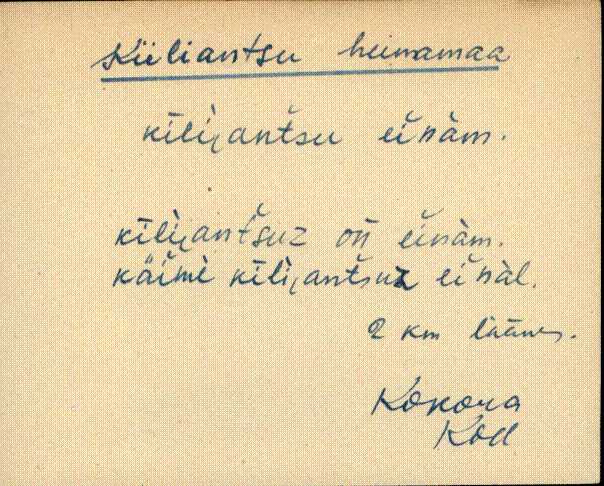 Kiiliantsu heinamaa
kīli̮antšu einäm.
kīli̮antšuz oñ einäm.
käimè kīli̮antšuz einäl.
2 km läänes.
Kokora
Kod